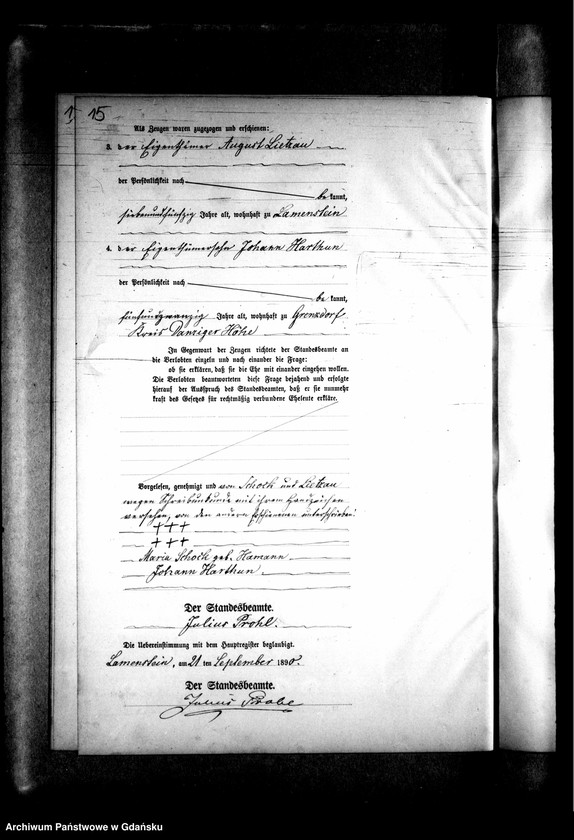 1 15
Als Zeugen waren zugezogen und erschienen:
3. der Eigenthümer August Lietzau
der Persönlichkeit nach
be kannt,
siebenundfünfzig Jahre alt, wohnhaft zu Lamenstein
4. der Eigenthümersohn Johann Harthun
der Persönlichkeit nach
be kannt,
fünfundzwanzig Jahre alt, wohnhaft zu Grenzdorf
Kreis Danziger Höhe
In Gegenwart der Zeugen richtete der Standesbeamte an
die Verlobten einzeln und nach einander die Frage:
ob sie erklären, daß sie die Ehe mit einander eingehen wollen.
Die Verlobten beantworteten diese Frage bejahend und erfolgte
hierauf der Ausspruch des Standesbeamten, daß er sie nunmehr
kraft des Gesetzes für rechtmäßig verbundene Eheleute erkläre.
Vorgelesen, genehmigt und von Schock und Lietzau
wegen Schreibunkunde mit ihrem Handzeichen
versehen, von den andern Erschienenen unterschrieben:
+++
+++
Maria Schock geb. Hamann
Johann Harthun
Der Standesbeamte.
Julius Prohl.
Die Uebereinstimmung mit dem Hauptregister beglaubigt.
Lamenstein, am 21 ten September 189
Der Standesbeamte.
Julius
Archiwum Państwowe w Gdańsku